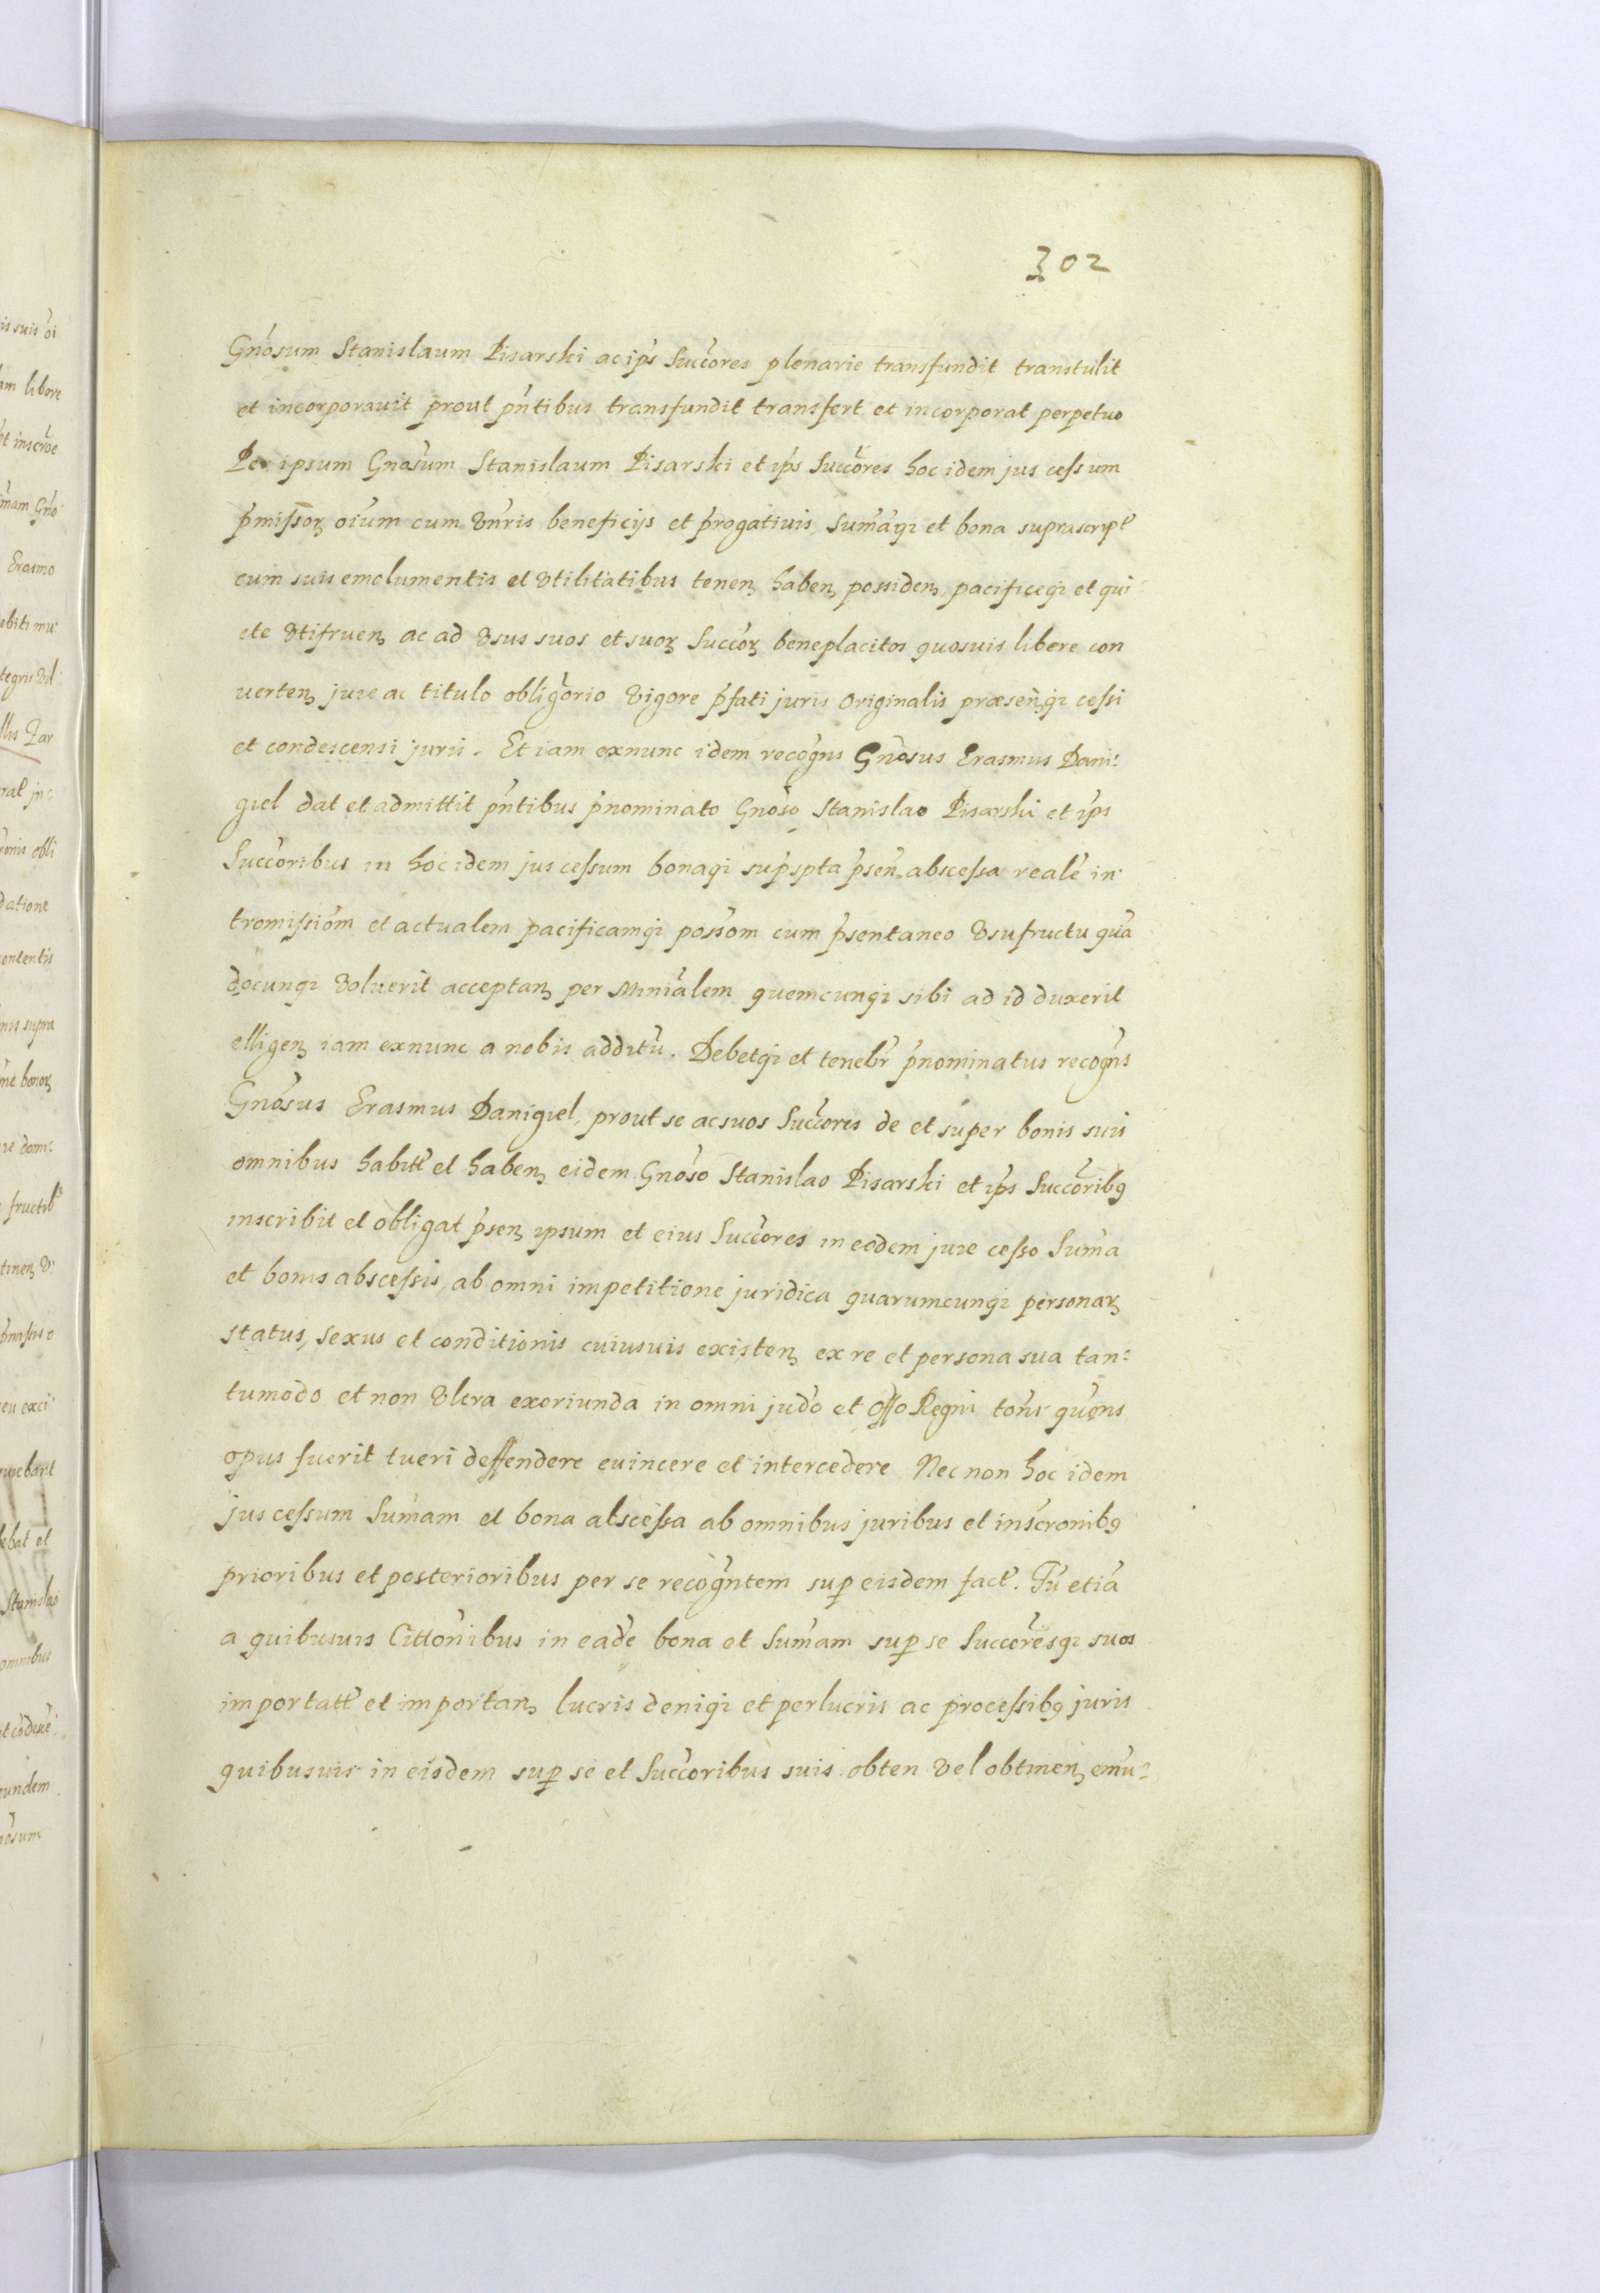 302
Gnõsum Stanislaum Pisarski ac ip̃s Succ̃ores plenarie transfundit transtulit
et incorporavit prout p̃ntibus transfundit transfert et incorporat perpetuo
Per ipsum Gnosum Stanislaum Pisarski et ip̃s Succ̃ores hoc idem jus cessum
p̃missoꝝ oĩum cum vnĩris beneficijs et p̃rogatiuis, Sum̃aqꝫ et bona suprascript̃
cum suis emolumentis et vtilitatibus tenenꝫ habenꝫ possidenꝫ pacificeqꝫ et qui
ete vtifruenꝫ ac ad vsus suos et suoꝝ Succoꝝ beneplacitos quosuis libere con
uertenꝫ jure ac titulo oblig̃orio vigore p̃fati juris originalis præsenꝫqꝫ cessi
et condescensi juris. Et iam exnunc idem recog̃ns Gnõsus Erasmus Dani-
giel dat et admittit p̃ntibus p̃nominato Gnõso Stanislao Pisarski et ip̃s
Succ̃oribus in hoc idem jus cessum bonaqꝫ sup̃spta p̃sen̄ abscessa realẽ in
tromissiõm et actualem pacificamqꝫ possõm cum p̃sentaneo vsufructu quã
docunqꝫ voluerit acceptanꝫ per Minĩalem quemcunqꝫ sibi ad id duxerit
elligenꝫ iam exnunc a nobis additũ. Debetqꝫ et tenebr̃ p̃nominatus recog̃ns
Gnõsus Erasmus Danigiel, prout se ac suos Succ̃ores de et super bonis suis
omnibus habitt̃ et habenꝫ eidem Gnõso Stanislao Pisarski et ip̃s Succ̃oribꝰ
inscribit et obligat p̃senꝫ ipsum et eius Succ̃ores in eodem jure cesso Sum̃a
et bonis abscessis, ab omni impetitione juridica quarumcunqꝫ personaꝝ
status, sexus et conditionis cuiusuis existenꝫ ex re et persona sua tan-
tumodo et non vltra exoriunda in omni judõ et Offo Regni toñs quens
opus fuerit tueri deffendere euincere et intercedere Nec non hoc idem
jus cessum Sum̃am et bona abscessa ab omnibus juribus et inscr̃onibꝰ
prioribus et posterioribus per se recog̃ntem sup̱ eisdem fact̃. Tũ etiã
a quibusuis Cittõnibus in eadẽ bona et Sum̃am sup̱ se Succ̃oresqꝫ suos
importatt̃ et importanꝫ lucris deniqꝫ et perlucris ac processibꝰ juris
quibusuis in eisdem sup̱ se et Succ̃oribus suis obten vel obtinenꝫ em̃u-